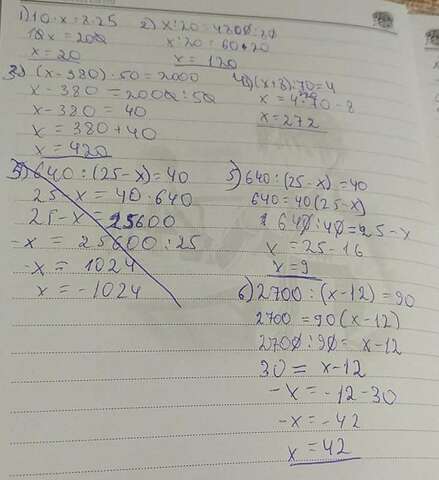 1) 10·x = 8·25
10x = 200
x = 20
2) x:20 = 4800:20
x:20 = 60·20
x = 120
3) (x-380)·50 = 2000
x - 380 = 2000:50
x - 380 = 40
x = 380 + 40
x = 420
4) (x+8):70 = 4
x = 4·70 - 8
x = 272
5) 640:(25-x) = 40
25-x = 40·640
25-x = 25600
-x = 25600:25
-x = 1024
x = -1024
5) 640:(25-x) = 40
640 = 40(25-x)
640:40 = 25-x
x = 25-16
x = 9
6) 2700:(x-12) = 90
2700 = 90(x-12)
2700:90 = x-12
30 = x-12
-x = -12-30
-x = -42
x = 42